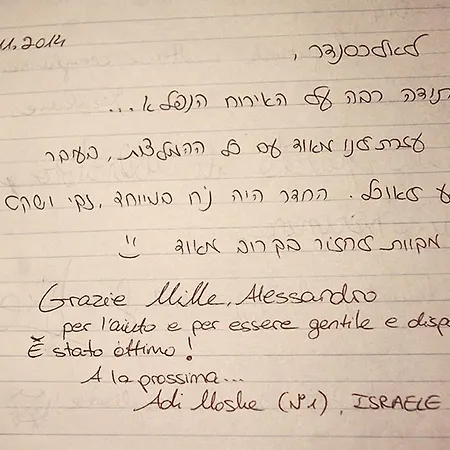 1.2014
לאלכסנדר,
תודה רבה על האירוח הנפלא...
עזרת לנו מאוד עם כל ההמלצות, מעבר
לאוכל. החדר היה נח במיוחד, נקי ושקט
מקוות לחזור בקרוב מאוד
Grazie Mille, Alessandro
per l'aiuto e per essere gentile e disp
È stato óttimo!
A la prossima...
Adi Moshe (N°1), ISRAELE